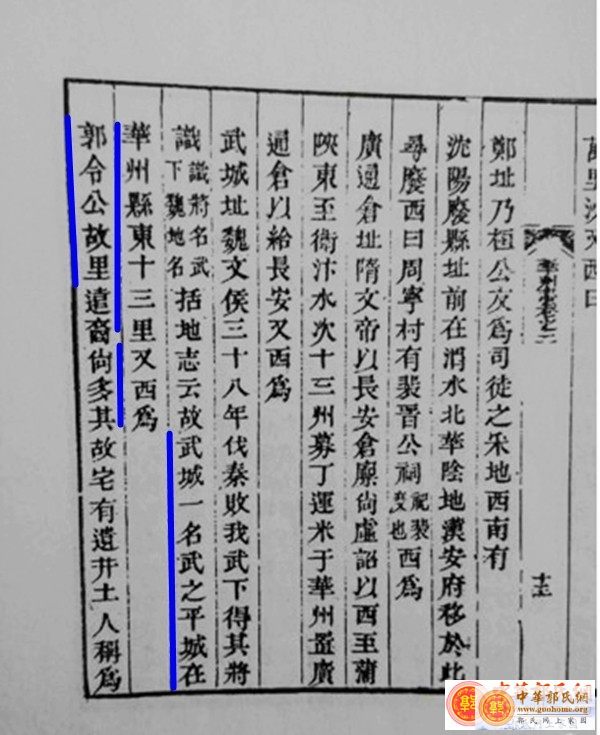 鄭址乃桓公友爲司徒之采地西南有
沈陽慶縣址前在渭水北華陰地漢安府移於此
尋慶西曰周寧村有裴晉公祠祀裴度也西爲
廣通倉址隋文帝以長安倉廩尙虛詔以西至蒲
陝東至衛汴水次十三州募丁運米于華州置廣
通倉以給長安又西爲
武城址魏文侯三十八年伐秦敗我武下得其將
識識將名武下魏地名括地志云故武城一名武之平城在
華州縣東十三里又西爲
郭令公故里遺裔尙多其故宅有遺井土人稱爲
中華郭氏網
www.guohome.org
郭氏網上家園